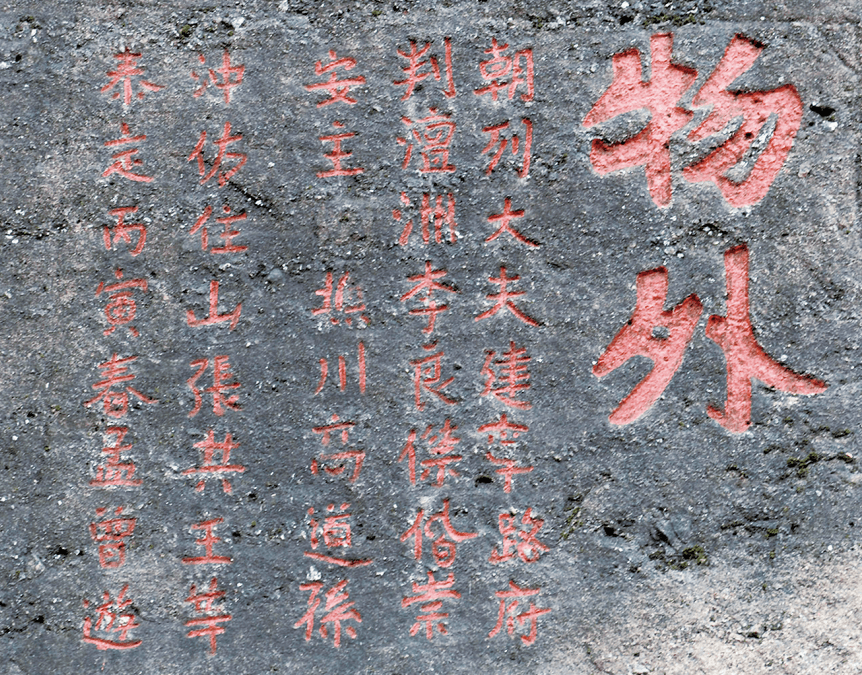 物外
朝列大夫建寧路府
判澶淵李良傑偕崇
安主 燕川高道孫
沖佑住山張共王華
泰定丙寅春孟曾遊